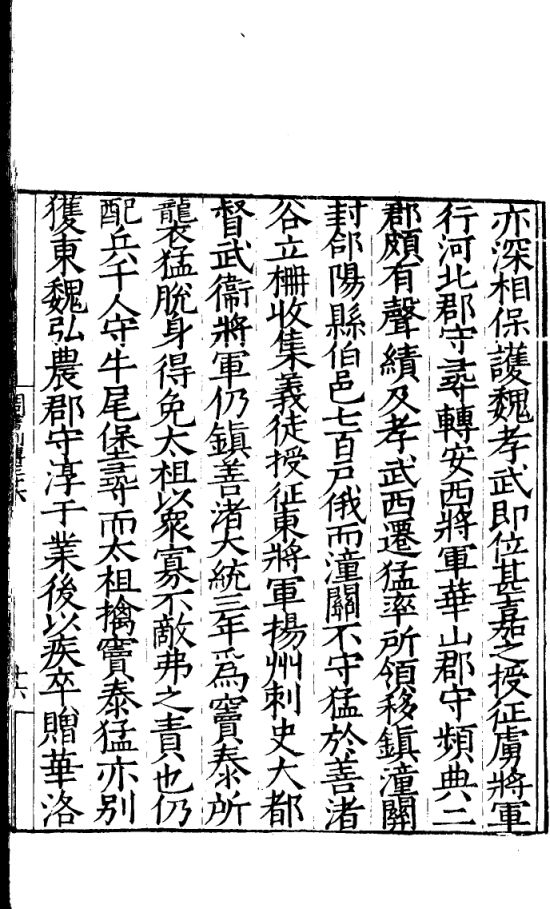 亦深相保護魏孝武即位甚嘉之授征虜將軍
行河北郡守尋轉安西將軍華山郡守頻典二
郡頗有聲績及孝武西遷猛率所領移鎮潼關
封郃陽縣伯邑七百戶俄而潼關不守猛於善渚
谷立柵收集義徒授征東將軍揚州刺史大都
督武衞將軍仍鎮善渚大統三年爲竇泰所
襲猛脫身得免太祖以衆寡不敵弗之責也仍
配兵千人守牛尾堡尋而太祖擒竇泰猛亦別
獲東魏弘農郡守淳于業後以疾卒贈華洛
十六